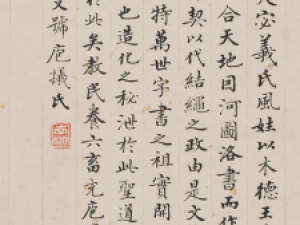 宓羲氏風姓以木德王
合天地因河圖洛書而作
契以代結繩之政由是文
特萬世字書之祖實開
也造化之秘泄於此聖道
於此矣教民養六畜充庖
又號庖犧氏